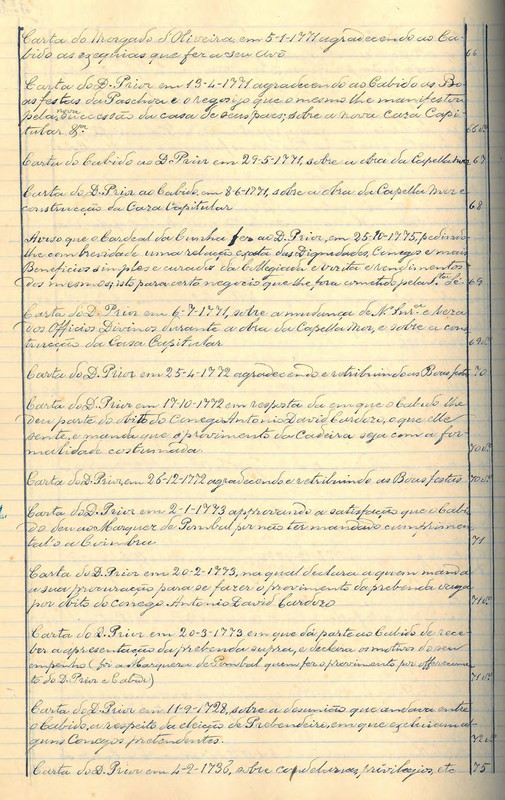 Carta do Morgado d'Oliveira, em 5-1-1771 agradecendo ao Ca-
bido as exequias que fez a seu Avô 66
Carta do D. Prior em 13-4-1771 agradecendo ao Cabido as Bo-
as festas da Paschoa e o regosijo que o mesmo lhe manifestou
pela nova successão da casa de seus paes; sobre a nova caza Capi-
tular &ª 66 vº
Carta do Cabido ao D. Prior em 29-5-1771, sobre a obra da Capella mor 67
Carta do D. Prior ao Cabido, em 8-6-1771, sobre a obra da Capella Mor e
construcção da Caza Capitular 68
Aviso que o Cardeal da Cunha fez ao D. Prior, em 25-10-1775, pedindo
lhe com brevidade uma relação exata das Dignidades, Conegos e mais
Beneficios simples e curados da Collegiada e rendimentos
dos mesmos, isto para certo negocio que lhe fora cometido pela Sta. Sé. 69
Carta do D. Prior em 6-7-1771, sobre a mudança de Nª Snrª e reza
dos Officios Divinos durante a obra da Capella Mor, e sobre a cons-
trucção da Casa Capitular 69 vº
Carta do D. Prior em 25-4-1772 agradecendo e retribuindo as Boas festas 70
Carta do D. Prior em 17-10-1772 em resposta da em que o Cabido lhe
deu parte do obito do Conego Antonio David Cardozo, o que elle
sente, e manda que o provimento da Cadeira seja com a for-
malidade costumada. 70 vº
Carta do D. Prior, em 26-12-1772 agradecendo e retribuindo as Boas festas 70 vº
Carta do D. Prior em 2-1-1773 approvando a satisfação que o Cabi-
do deu ao Marquez de Pombal por não ter mandado cumprimen-
tal-o a Coimbra 71
Carta do D. Prior em 20-2-1773, na qual declara a quem manda
a sua procuração para se fazer o provimento da prebenda vaga
por obito do conego Antonio David Cardozo 71 vº
Carta do D. Prior em 20-3-1773 em que dá parte ao Cabido de rece-
ber a apresentação da prebenda supra, e declara os motivos do seu
empenho (foi a Marqueza de Pombal quem fez o provimento por offerecimen-
to do D. Prior e Cabido) 71 vº
Carta do D. Prior em 11-9-1728, sobre a desunião que andava entre
o Cabido, a respeito da eleição de Prebendeiro, em que excluiram al-
guns Conegos pretendentes. 32 vº
Carta do D. Prior em 4-2-1736, sobre candeturias, privilegios, etc 75